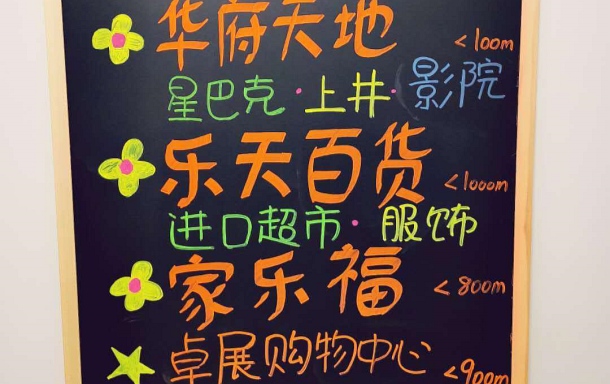 华府天地 <100m
星巴克·上井·影院
乐天百货 <1000m
进口超市·服饰
家乐福 <800m
卓展购物中心 <900m